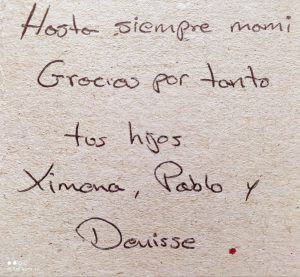 Hasta siempre mami
Gracias por tanto
tus hijos
Ximena, Pablo y
Denisse.